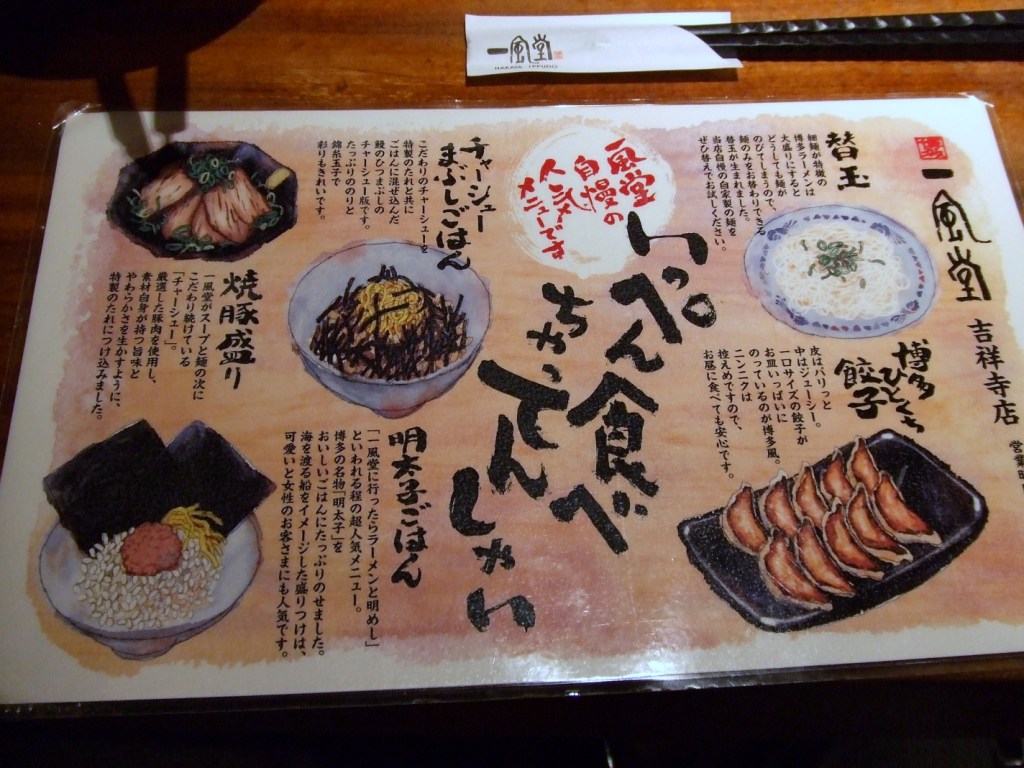 一風堂
HAKATA IPPUDO
一風堂
吉祥寺店
替玉
細麺が特徴の
博多ラーメンは
大盛りにすると
どうしても麺が
のびてしまうので、
麺のみをお替わりできる
替玉が生まれました。
当店自慢の自家製の麺を
ぜひ替えでお試しください。
博多
ひとくち
餃子
皮はパリっと
中はジューシー。
一口サイズの餃子が
お皿いっぱいに
のっているのが博多風。
ニンニクは
控えめですので、
お昼に食べても安心です。
一風堂
自慢の
人気メニューです
いっぺん食べ
ちゃってんしゃい
チャーシュー
まぶしごはん
こだわりのチャーシューを
特製のたれと共に
ごはんに混ぜ込んだ
鰻のひつまぶしの
チャーシュー版です。
たっぷりののりと
錦糸玉子で
彩りもきれいです。
明太子ごはん
「一風堂に行ったらラーメンと明めし」
といわれる程の超人気メニュー。
博多の名物「明太子」を
おいしいごはんにたっぷりのせました。
海を渡る船をイメージした盛りつけは、
可愛いと女性のお客さまにも人気です。
焼豚盛り
一風堂がスープと麺の次に
こだわり続けている
「チャーシュー」。
厳選した豚肉を使用し、
素材自身が持つ旨味と
やわらかさを生かすように、
特製のたれにつけ込みました。